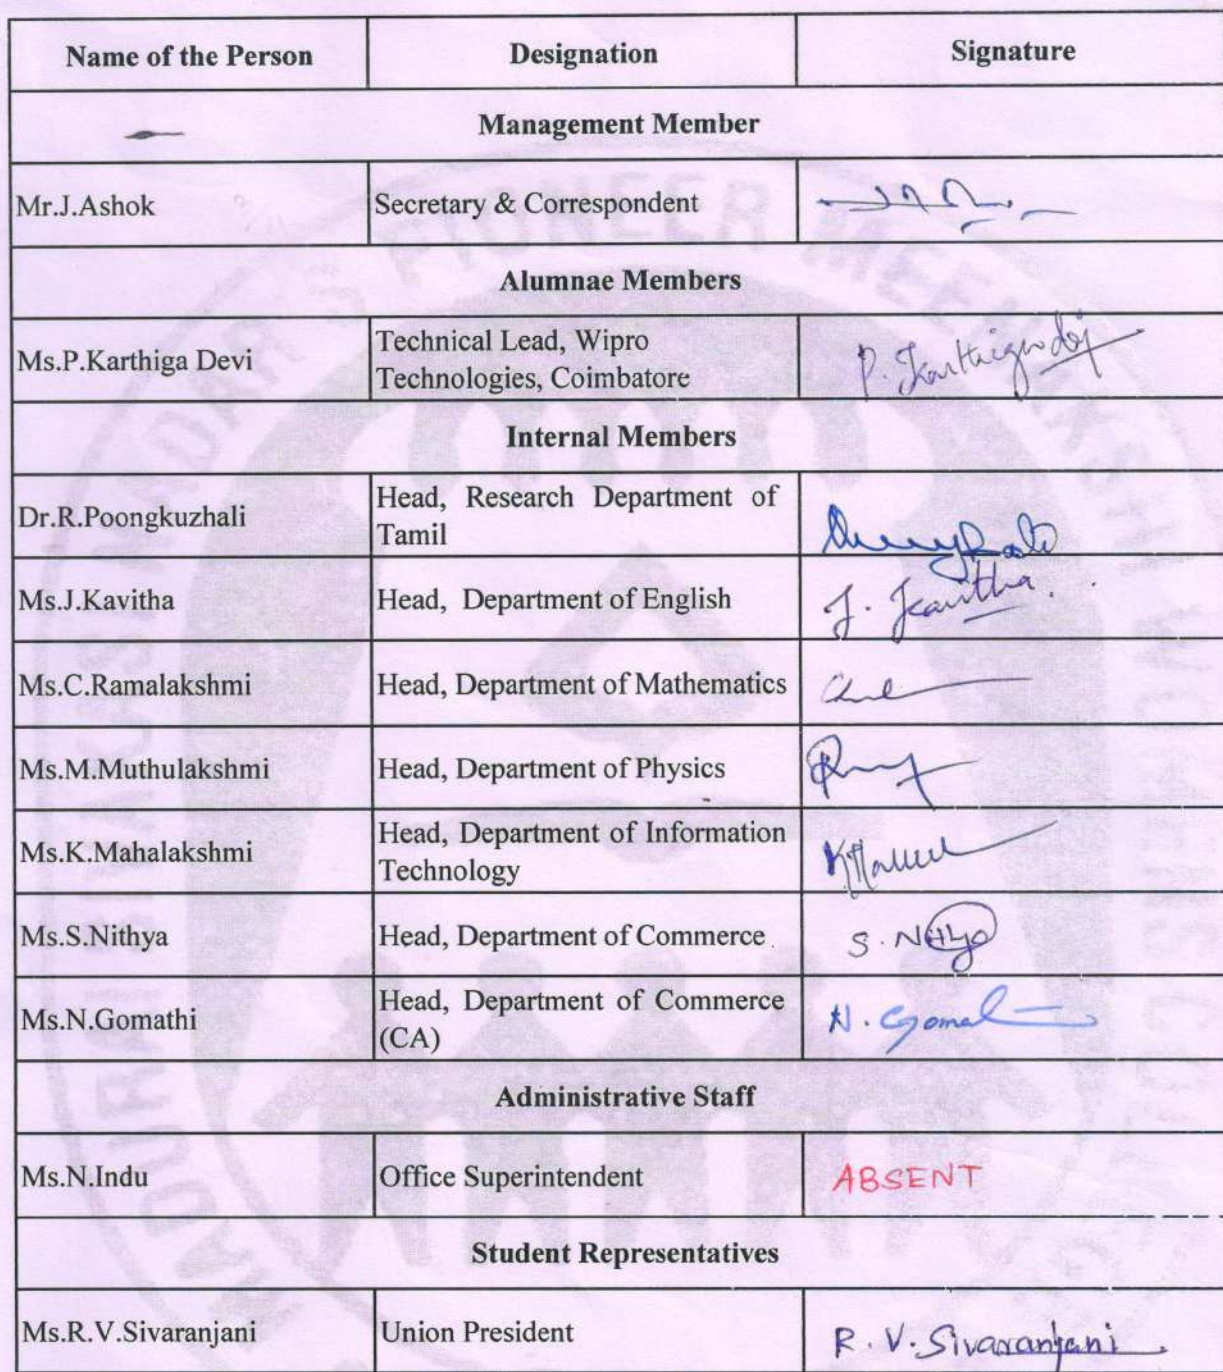 Name of the Person Designation Signature
Management Member
Mr.J.Ashok Secretary & Correspondent
Alumnae Members
Ms.P.Karthiga Devi Technical Lead, Wipro
Technologies, Coimbatore P. Karthigadevi
Internal Members
Dr.R.Poongkuzhali Head, Research Department of
Tamil
Ms.J.Kavitha Head, Department of English J. Kavitha.
Ms.C.Ramalakshmi Head, Department of Mathematics
Ms.M.Muthulakshmi Head, Department of Physics
Ms.K.Mahalakshmi Head, Department of Information
Technology
Ms.S.Nithya Head, Department of Commerce S. Nithya
Ms.N.Gomathi Head, Department of Commerce
(CA) N. Gomathi
Administrative Staff
Ms.N.Indu Office Superintendent ABSENT
Student Representatives
Ms.R.V.Sivaranjani Union President R. V. Sivaranjani